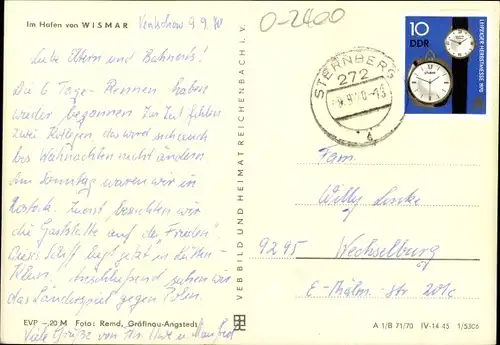 Im Hafen von WISMAR
Ventschow 9.9.70
O-2400
Liebe Eltern und
Die 6 Tage-Rennen haben
wieder begonnen. Zur Zeit fehlen
zwei Kollegen das wird sich auch
bis Weihnachten nicht ändern
Am Sonntag waren wir in
Rostock. Zuerst besuchten wir
die Gaststätte auf der "Frieden".
Dieses Schiff liegt jetzt in Lütten-
Klein. Anschließend sahen wir
das Länderspiel gegen Polen.
Viele Grüße von und Manfred
EVP -,20 M Foto: Remd, Gräfinau-Angstedt
VEB BILD UND HEIMAT REICHENBACH I. V.
STERNBERG
272
9.9.70-13
10
DDR
LEIPZIGER HERBSTMESSE 1970
Fam.
Willy
9295 Wechselburg
E-Thälm. Str 201c
A 1/B 71/70 IV-14-45 1/5306